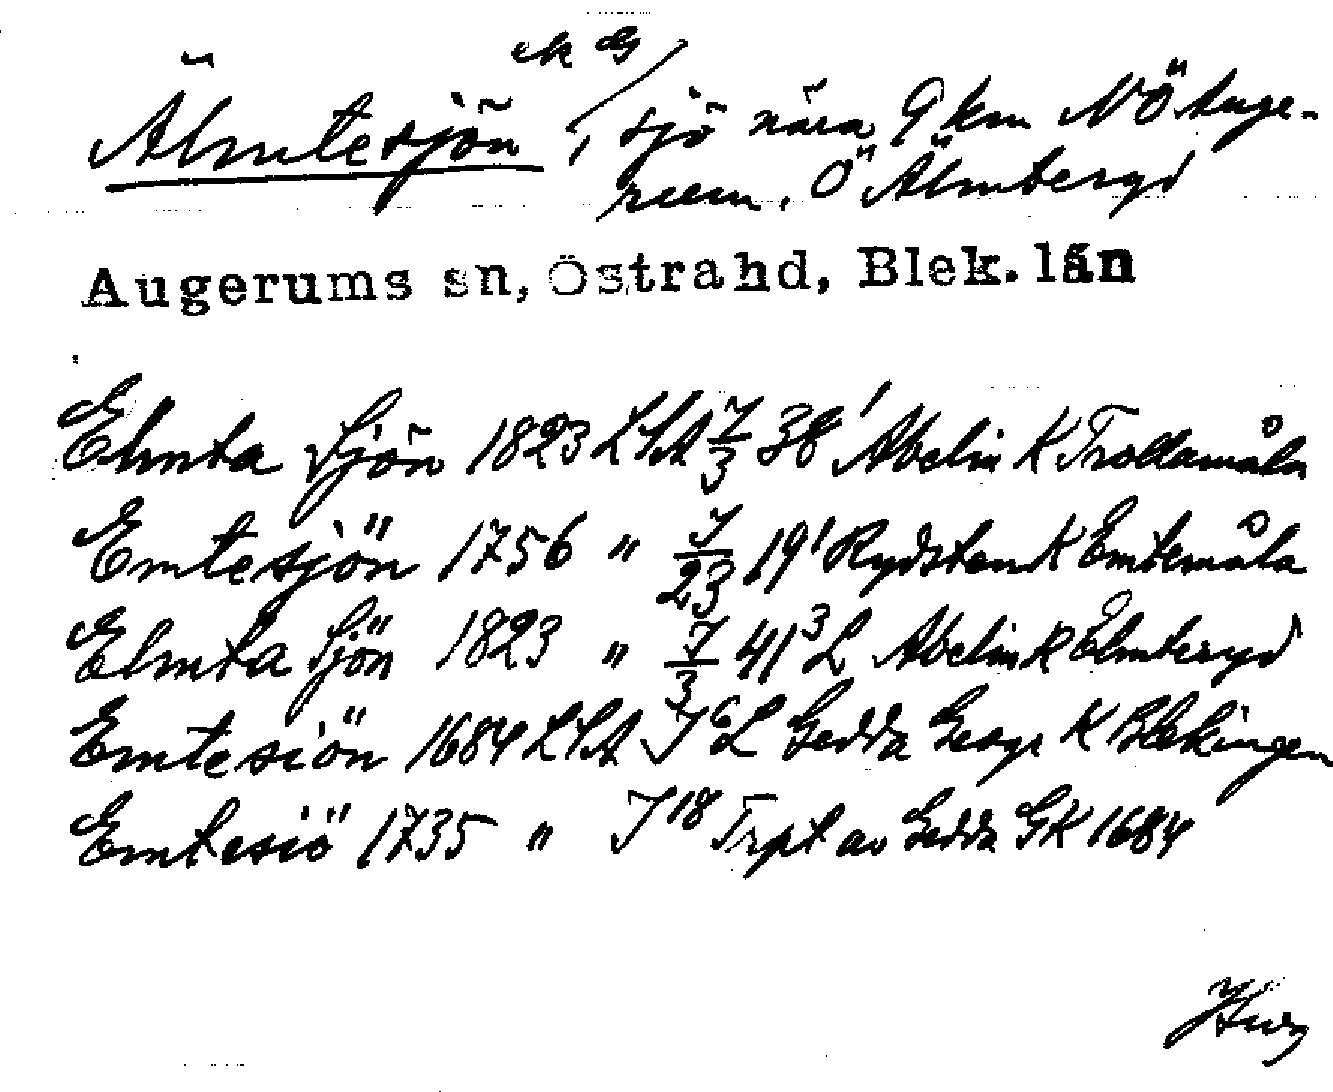 ek
Älmtesjön, sjö nära 9 km NÖ Auge-
rum, Ö Älmteryd
Augerums sn, Östra hd, Blek. län
Elmta Sjön 1823 LSA J/3 38¹ Abelin K Trollamåla
Emtesjön 1756 " J/23 19¹ Rydsten K Emtemåla
Elmta Sjön 1823 " J/3 41³ L Abelin K Elmteryd
Emtesiön 1684 LSA J⁶ L Gedda Geogr K Blekingen
Emtesiö 1735 " J¹⁸ Trpt av Gedda GK 1684